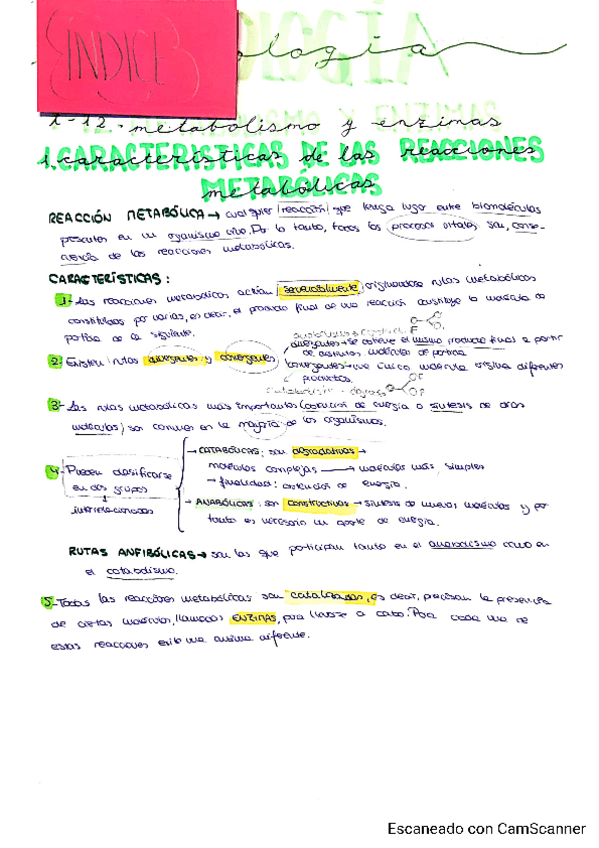 ÍNDICE
ología
T-12.- metabolismo y enzimas
1. CARACTERÍSTICAS DE LAS REACCIONES
METABÓLICAS
REACCIÓN METABÓLICA → cualquier reacción que tenga lugar entre biomoléculas
presentes en un organismo vivo. Por lo tanto, todos los procesos vitales son conse-
cuencia de las reacciones metabólicas.
CARACTERÍSTICAS:
1- Las reacciones metabólicas actúan, originándose rutas metabólicas
constituidas por varias, es decir, el producto final de una reacción constituye la molécula de
partida de la siguiente.
2- Existen rutas divergentes y convergentes
divergentes → se obtiene el mismo producto final a partir
de distintas moléculas de partida
convergentes → una única molécula origina diferentes
productos.
3- Las rutas metabólicas más importantes (obtención de energía o síntesis de otras
moléculas) son comunes en la mayoría de los organismos.
4- Pueden clasificarse
en dos grupos
interrelacionados
→ CATABÓLICAS: son degradativas →
moléculas complejas → moléculas más simples
→ finalidad: obtención de energía.
→ ANABÓLICAS: son constructivas → síntesis de nuevas moléculas y por
tanto es necesario un aporte de energía.
RUTAS ANFIBÓLICAS → son las que participan tanto en el anabolismo como en
el catabolismo.
5- Todas las reacciones metabólicas son catalizadas, es decir, precisan la presencia
de ciertas moléculas, llamadas ENZIMAS, para llevarse a cabo. Para cada una de
estas reacciones existe una enzima diferente.
Escaneado con CamScanner